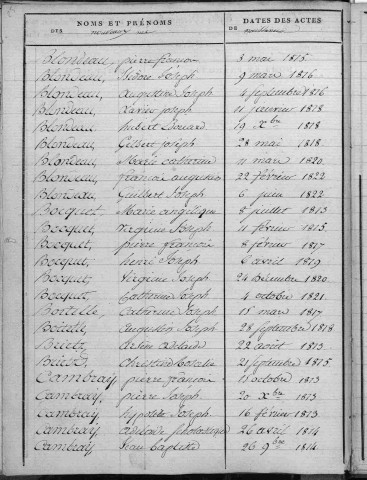 NOMS ET PRÉNOMS DATES DES ACTES
DES nouveaux nés DE naissances
Blondeau, pierre françois 3 mai 1815
Blondeau, Isidore Joseph 9 mars 1816
Blondeau, augustine Joseph 4 Septembre 1816
Blondeau, Xavier Joseph 11 fevrier 1818
Blondeau, hubert Edouard 19 Xbre 1818
Blondeau, Gilbert Joseph 28 mai 1818
Blondeau, Marie catherine 11 mars 1820
Blondeau, françois augustin 22 février 1822
Blondeau, Guilbert Joseph 6 juin 1822
Bocquet, Marie angélique 8 juillet 1813
Bocquet, Virginie Joseph 11 février 1815
Bocquet, pierre françois 8 février 1817
Bocquet, henri Joseph 6 avril 1819
Bocquet, Virginie Joseph 24 Décembre 1820
Bocquet, Catherine Joseph 4 octobre 1821
Catherine Joseph 15 mars 1817
augustin Joseph 28 Septembre 1818
adelaide 22 août 1813
21 Septembre 1815
Cambray, pierre françois 15 octobre 1813
Cambray, pierre Joseph 20 Xbre 1813
Cambray, hypolite Joseph 16 février 1813
Cambray, adelaide 26 avril 1814
Cambray, Jean Baptiste 26 9bre 1814